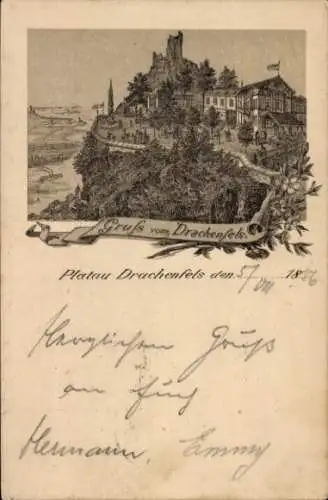 Gruss vom Drachenfels.
Platau Drachenfels den 5/VIII 18
Herzlichen Gruß
an Euch
Hermann, Emmy